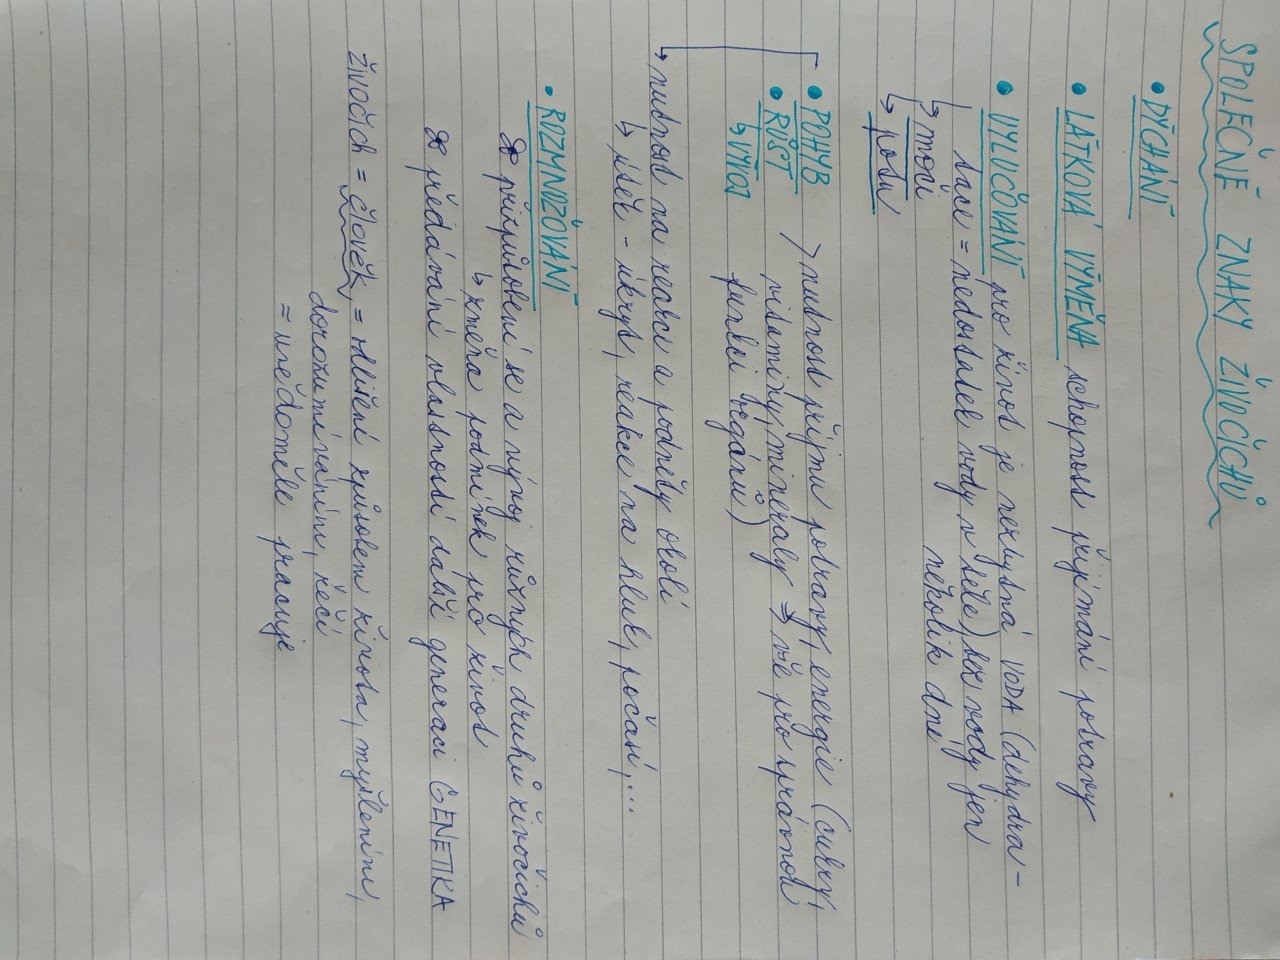 SPOLEČNÉ ZNAKY ŽIVOČICHŮ
• DÝCHÁNÍ
• LÁTKOVÁ VÝMĚNA schopnost přijímání potravy
• VYLUČOVÁNÍ pro život je nezbytná VODA (dehydra-
tace = nedostatek vody v těle), bez vody jen
↳ moči několik dní
↳ potu
• POHYB > nutnost příjmu potravy, energie (cukry,
• RŮST vitamíny, minerály ⇒ vše pro správnou
↳ VÝVOJ funkci orgánů)
↳ nutnost na reakce a podněty okolí
↳ útěk - úkryt, reakce na hluk, počasí, ...
• ROZMNOŽOVÁNÍ
přizpůsobení se a vývoj různých druhů živočichů
↳ změna podmínek pro život
předávání vlastností další generaci GENETIKA
ŽIVOČICH = člověk = odlišení způsobem života, myšlením,
dorozumíváním, řečí
= uvědoměle pracuje